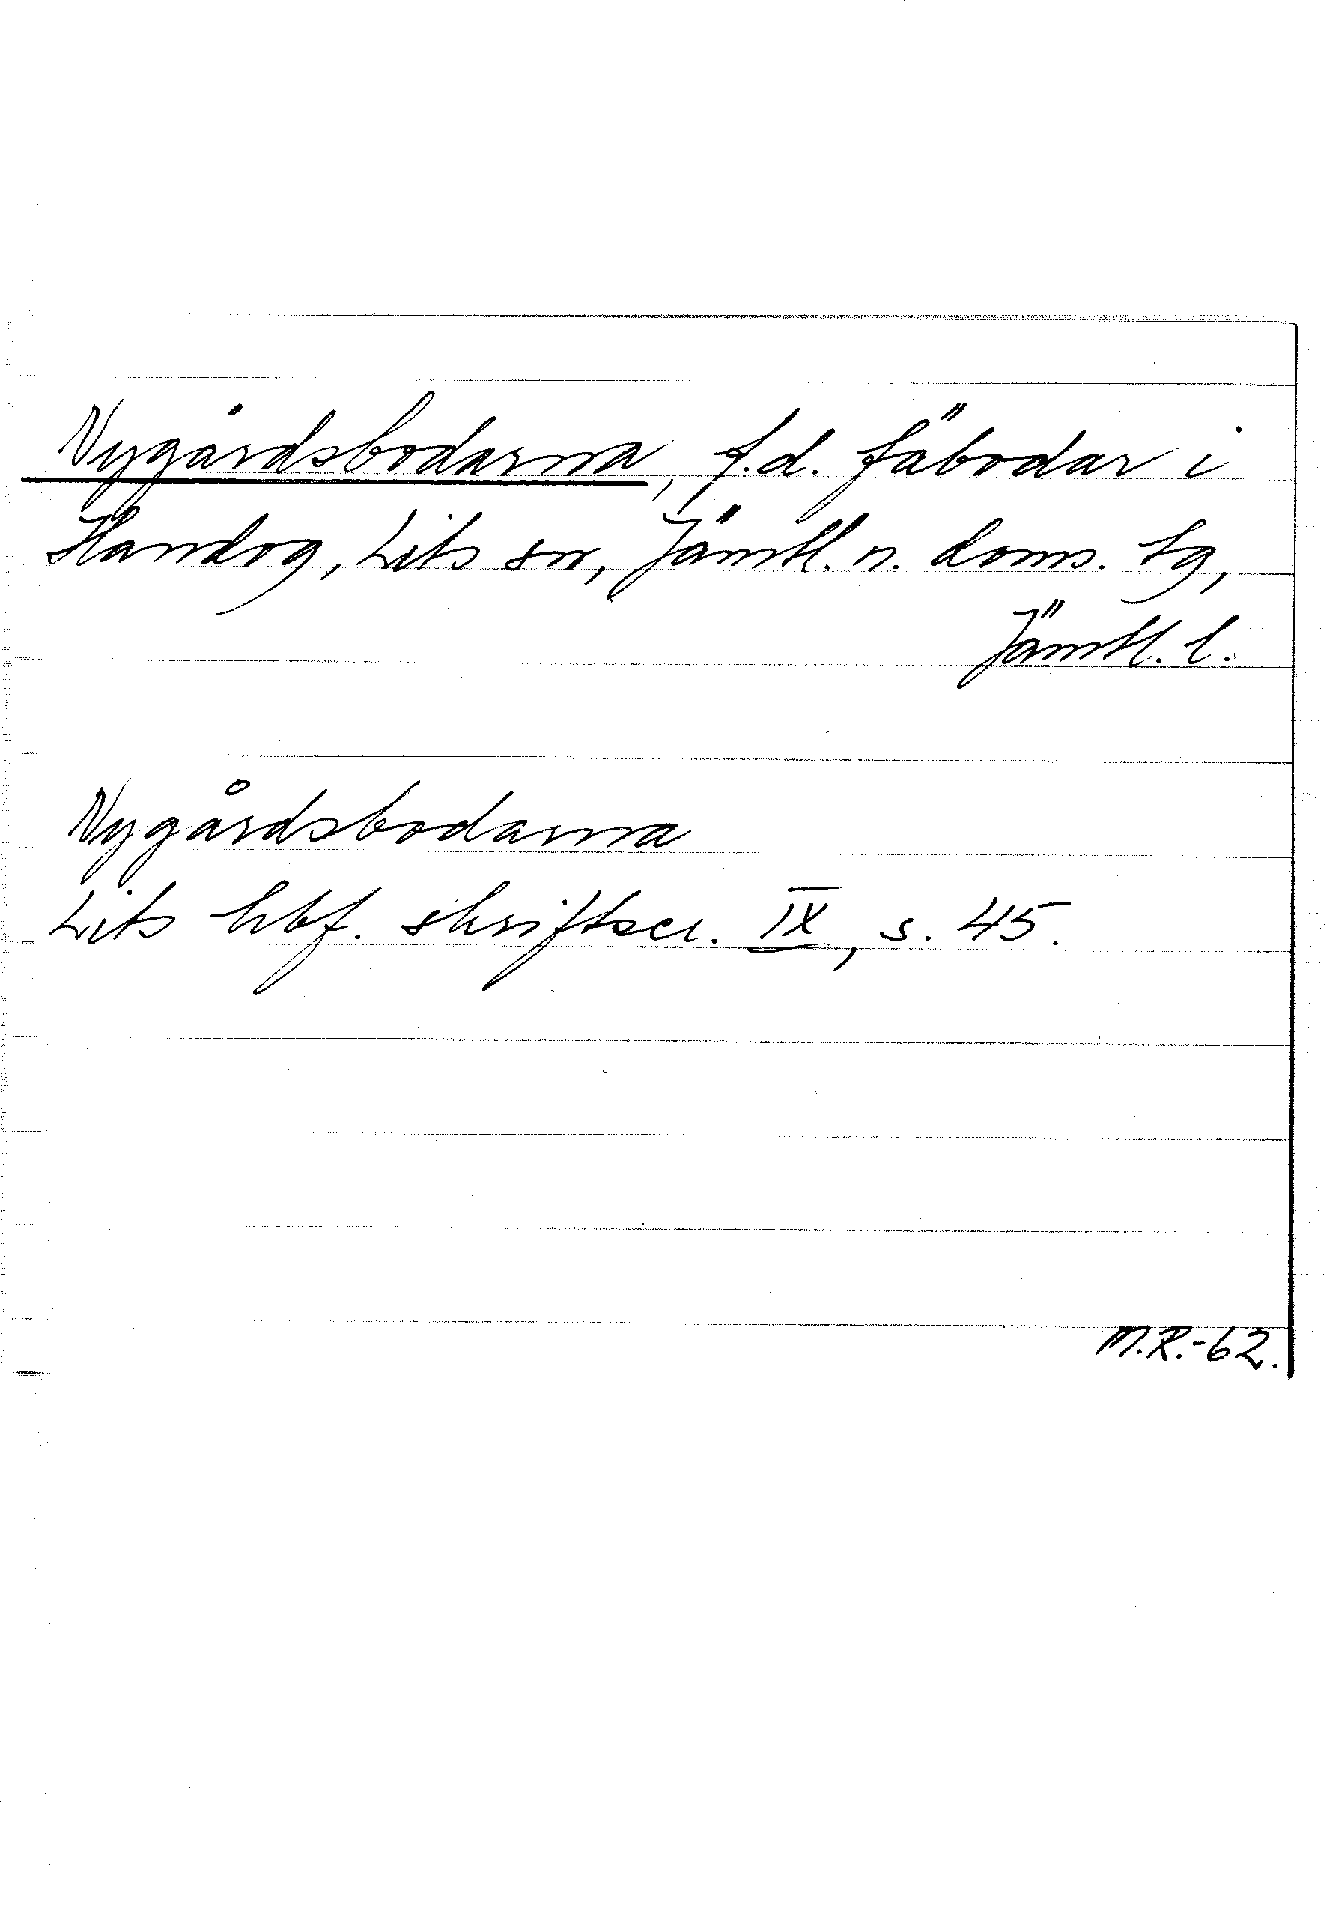 Nygårdsbodarna, f.d. fäbodar i
Handog, Lits sn, Jämtl. n. doms. tg,
Jämtl. l.
Nygårdsbodarna
Lits hbf. skriftser. IX, s. 45.
M.R.-62.